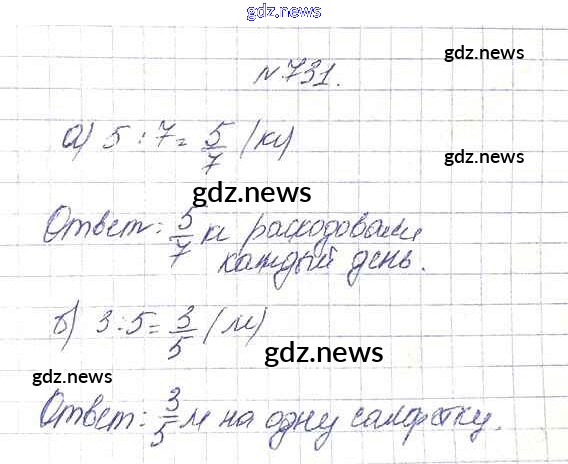 gdz.news
gdz.news
№731.
а) 5 : 7 = 5/7 (кг)
gdz.news
gdz.news
Ответ: 5/7 кг расходовали
каждый день.
б) 3 : 5 = 3/5 (м)
gdz.news
gdz.news
Ответ: 3/5 м на одну салфетку.
gdz.news